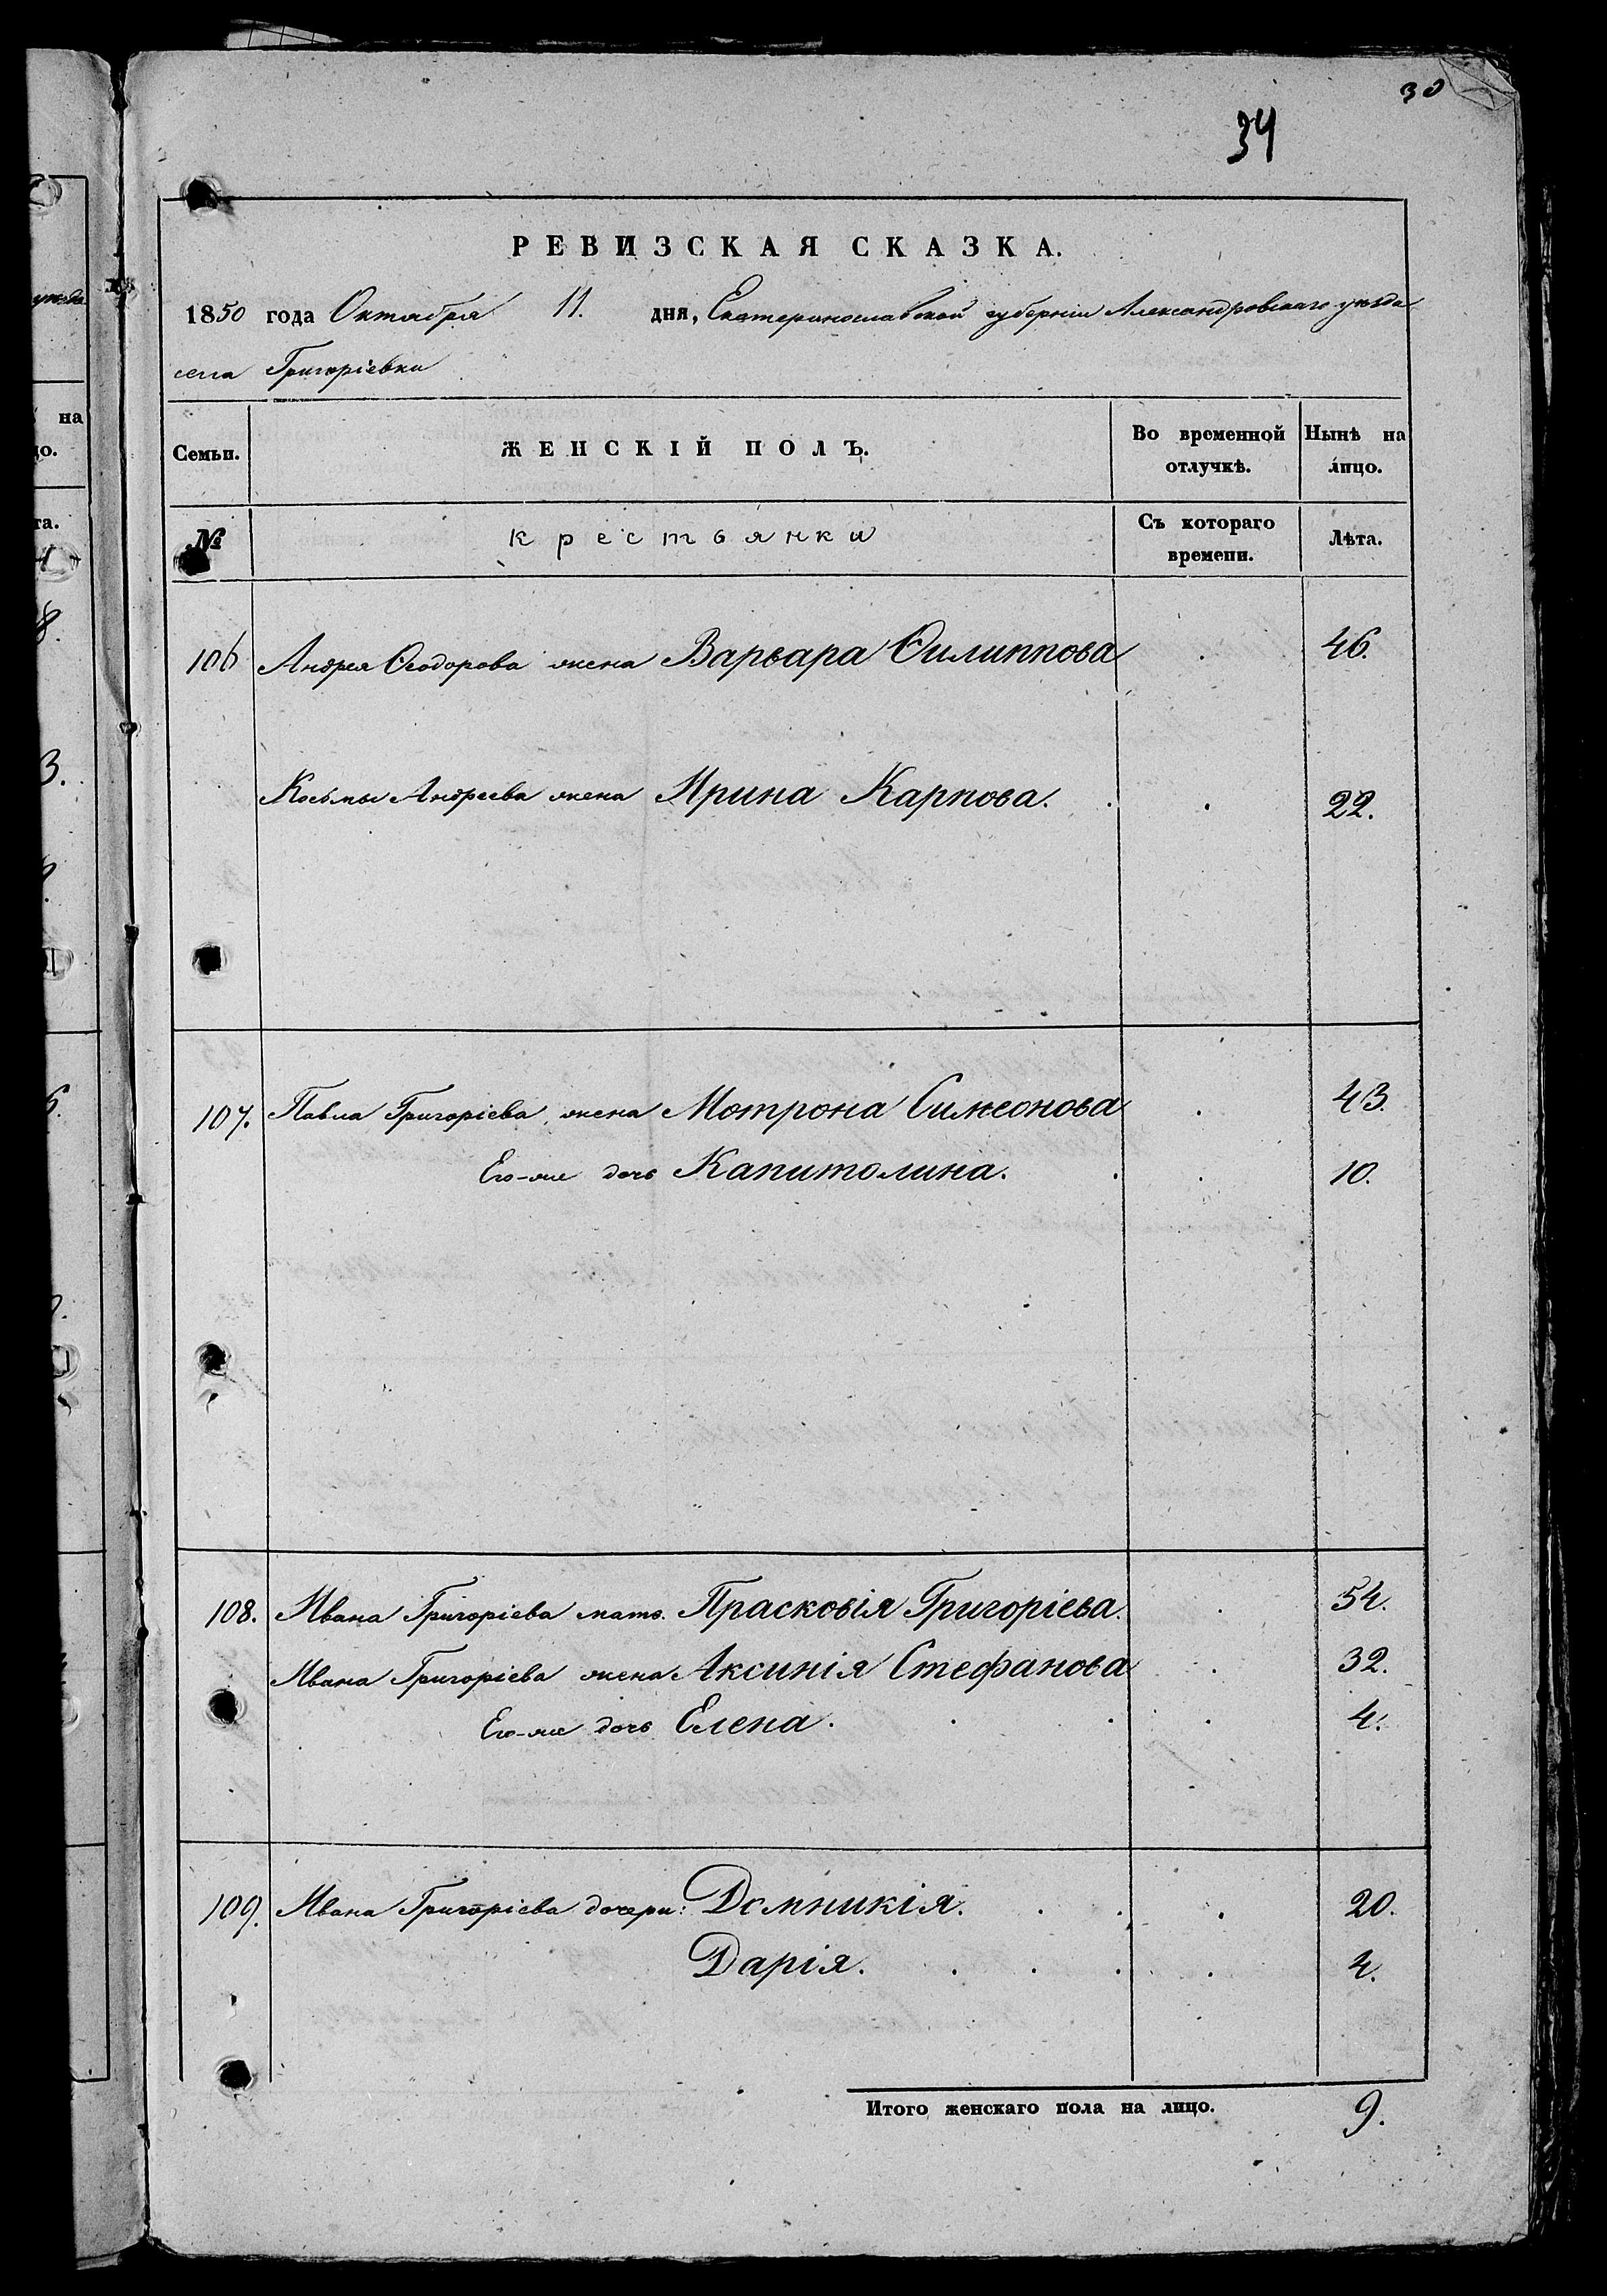 30
34
РЕВИЗСКАЯ СКАЗКА.
1850 года Октября 11. дня, Екатеринославской губерніи Александровскаго уѣзда
села Григоріевки
Семьи. ЖЕНСКІЙ ПОЛЪ. Во временной отлучкѣ. Нынѣ на лицо.
№ крестьянки Съ котораго времени. Лѣта.
106 Андрея Ѳеодорова жена Варвара Филиппова . 46.
Косьмы Андреева жена Ирина Карпова. . . 22.
107. Павла Григоріева жена Мотрона Симеонова . 43.
Его-же дочь Капитолина. . . 10.
108. Ивана Григоріева мать Прасковія Григоріева. . 54.
Ивана Григоріева жена Аксинія Стефанова . 32.
Его-же дочь Елена. . . . 4.
109. Ивана Григоріева дочери: Домникія. . . . 20.
Дарія. . . . . 4.
Итого женскаго пола на лицо. 9.